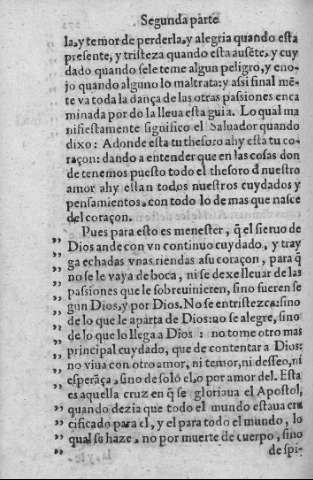 Segunda parte
la, y temor de perderla, y alegria quando esta
presente, y tristeza quando esta ausẽte, y cuy
dado quando se le teme algun peligro, y eno-
jo quando alguno lo maltrata: y assi final mẽ-
te va toda la dança de las otras passiones enca
minada por do la lleua esta guia. Lo qual ma
nifiestamente significo el Saluador quando
dixo: A donde esta tu thesoro ahy esta tu co-
raçon: dando a entender que en las cosas don
de tenemos puesto todo el thesoro d̃ nuestro
amor ahy estan todos nuestros cuydados y
pensamientos, con todo lo de mas que nasce
del coraçon.
Pues para esto es menester, q̃ el sieruo de
„ Dios ande con vn continuo cuydado, y tray
„ ga echadas vnas riendas a su coraçon, para q̃
„ no se le vaya de boca, ni se dexe lleuar de las
„ passiones que le sobreuinieren, sino fueren se
„ gun Dios, y por Dios. No se entristezca: sino
„ de lo que le aparta de Dios: no se alegre, sino
„ de lo que lo llega a Dios: no tome otro mas
„ principal cuydado, que de contentar a Dios:
„ no viua con otro amor, ni temor, ni desseo, ni
„ esperãça, sino de solo el, o por amor del. Esta
„ es aquella cruz en q̃ se gloriaua el Apostol,
„ quando dezia que todo el mundo estaua cru
„ cificado para el, y el para todo el mundo, lo
„ qual se haze, no por muerte de cuerpo, sino
„ de spi-